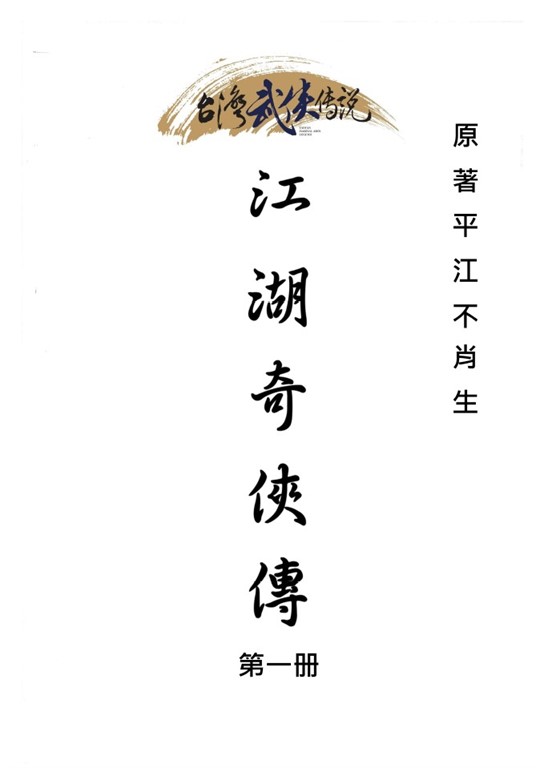 台灣武侠传説
原著平江不肖生
江湖奇俠傳
第一册